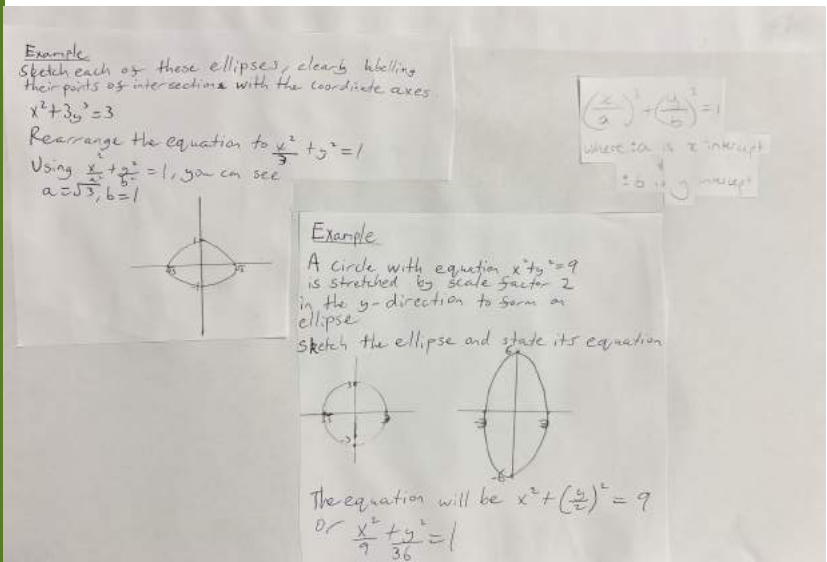 Example
Sketch each of these ellipses, clearly labelling
their points of intersections with the coordinate axes.
x²+3y³=3
Rearrange the equation to x²/3 + y² = 1
Using x²/a² + y²/b² = 1, you can see
a=√3, b=1
1
√3
(x/a)² + (y/b)² = 1
where ±a is x intercept
±b is y intercept
Example
A circle with equation x²+y²=9
is stretched by scale factor 2
in the y-direction to form an
ellipse
Sketch the ellipse and state its equation
6
3
-3
3
-3
-6
The equation will be x²+(y/2)² = 9
Or x²/9 + y²/36 = 1